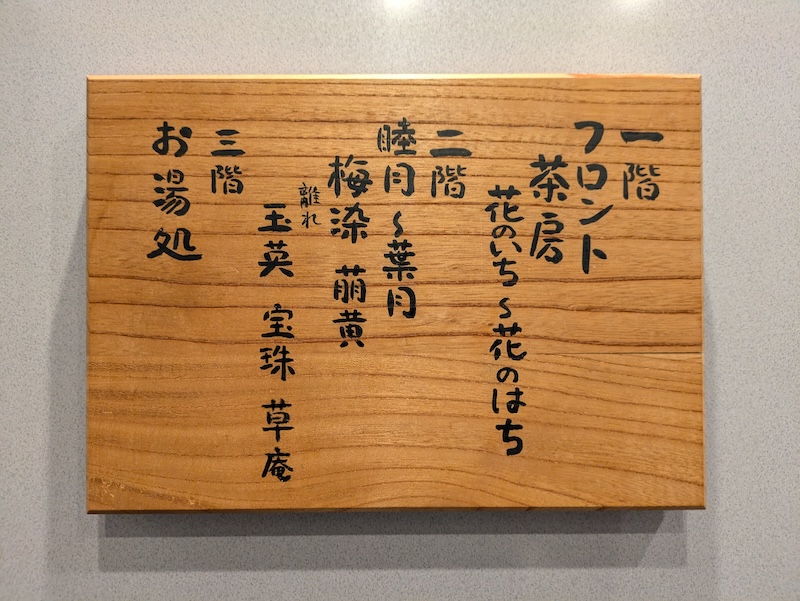 一階
フロント
茶房
花のいち~花のはち
二階
睦月~葉月
梅染 萠黄
離れ
玉英 宝珠 草庵
三階
お湯処